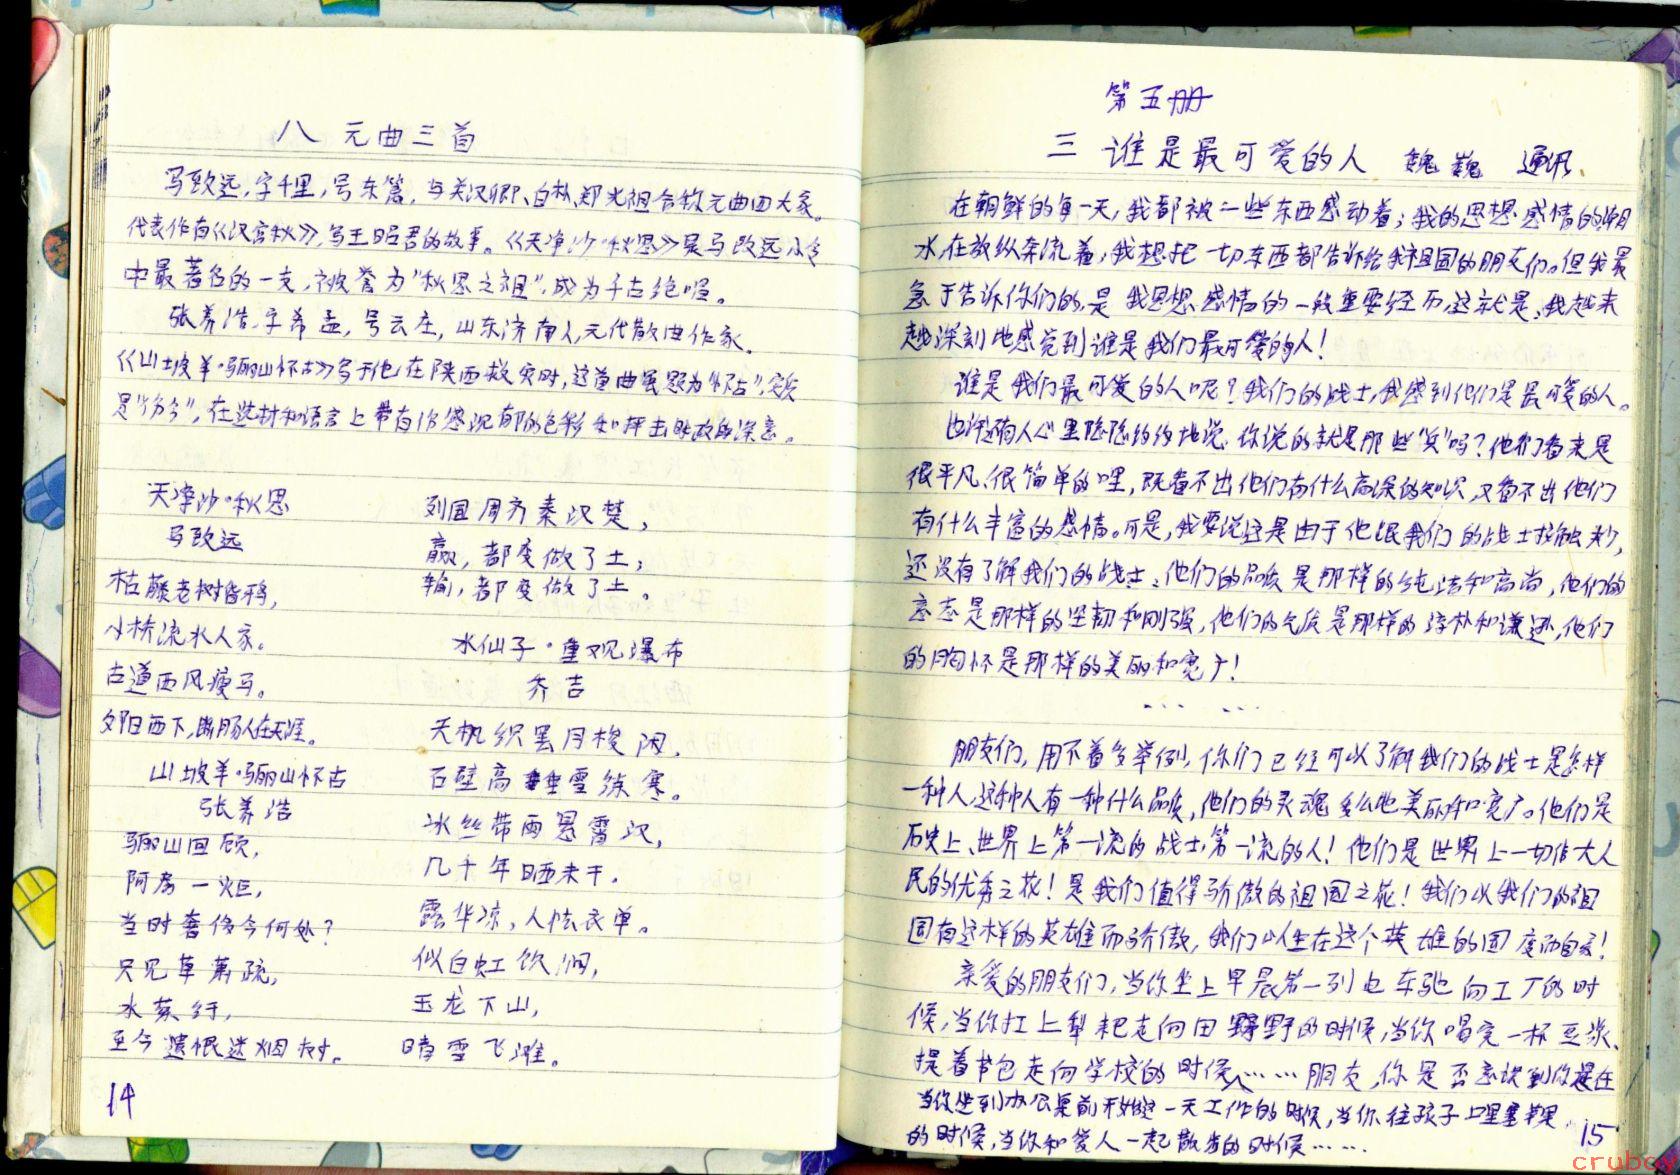 八 元曲三首
马致远,字千里,号东篱,与关汉卿、白朴、郑光祖合称元曲四大家。
代表作有《汉宫秋》,写王昭君的故事。《天净沙·秋思》是马致远小令
中最著名的一支,被誉为"秋思之祖",成为千古绝唱。
张养浩,字希孟,号云庄,山东济南人,元代散曲作家。
《山坡羊·骊山怀古》写于他在陕西救灾时,这首曲虽题为"怀古",实质
是"伤今",在选材和语言上带有伤感沉郁的色彩和抨击时政的深意。
天净沙·秋思
马致远
枯藤老树昏鸦,
小桥流水人家。
古道西风瘦马。
夕阳西下,断肠人在天涯。
山坡羊·骊山怀古
张养浩
骊山回顾,
阿房一炬,
当时奢侈今何处?
只见草萧疏,
水萦纡,
至今遗恨迷烟树。
列国周齐秦汉楚,
赢,都变做了土;
输,都变做了土。
水仙子·重观瀑布
乔吉
天机织罢月梭闲,
石壁高垂雪练寒。
冰丝带雨悬霄汉,
几千年晒未干。
露华凉,人怯衣单。
似白虹饮涧,
玉龙下山,
晴雪飞滩。
14
第五册
三 谁是最可爱的人 魏巍 通讯
在朝鲜的每一天,我都被一些东西感动着;我的思想感情的潮
水,在放纵奔流着;我想把一切东西都告诉给我祖国的朋友们。但我最
急于告诉你们的,是我思想感情的一段重要经历,这就是:我越来
越深刻地感觉到谁是我们最可爱的人!
谁是我们最可爱的人呢?我们的战士,我感到他们是最可爱的人。
也许还有人心里隐隐约约地说:你说的就是那些"兵"吗?他们看来是
很平凡、很简单的哩,既看不出他们有什么高深的知识,又看不出他们
有什么丰富的感情。可是,我要说,这是由于他跟我们的战士接触少,
还没有了解我们的战士:他们的品质是那样的纯洁和高尚,他们的
意志是那样的坚韧和刚强,他们的气质是那样的淳朴和谦逊,他们
的胸怀是那样的美丽和宽广!
……
朋友们,用不着多举例,你们已经可以了解我们的战士是怎样
一种人,这种人有一种什么品质,他们的灵魂多么地美丽和宽广。他们是
历史上、世界上第一流的战士,第一流的人!他们是世界上一切伟大人
民的优秀之花!是我们值得骄傲的祖国之花!我们以我们的祖
国有这样的英雄而骄傲,我们以生在这个英雄的国度而自豪!
亲爱的朋友们,当你坐上早晨第一列电车驰向工厂的时
候,当你扛上犁耙走向田野的时候,当你喝完一杯豆浆、
提着书包走向学校的时候,……朋友,你是否意识到你是在
当你坐到办公桌前开始这一天工作的时候,当你往孩子口里塞苹果
的时候,当你和爱人一起散步的时候……
15
crubco